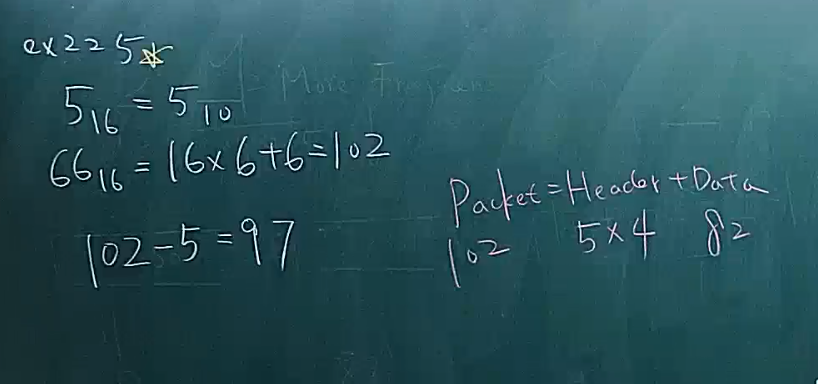 ex22 5☆
5₁₆ = 5₁₀
66₁₆ = 16×6+6=102
102-5=97
More
Packet=Header+Data
102 5×4 82